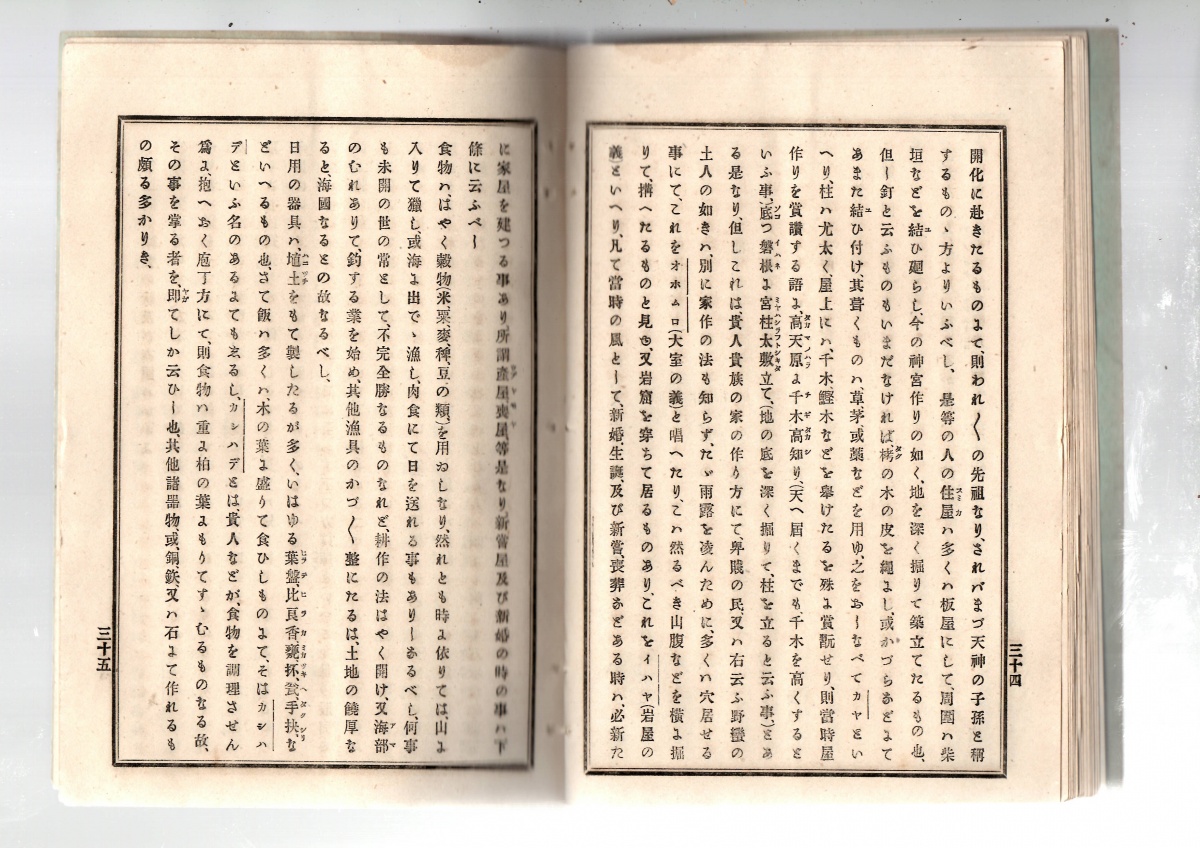 三十四
開化に赴きたるものまて、則われ〱の先祖なり、されバまづ天神の子孫と稱
するものゝ方よりいふべし、是等の人の住屋ハ多くハ板屋にして、周圍ハ柴
垣などを結ひ廻らし、今の神宮作りの如く、地を深く掘りて築立てたるもの也、
但し釘と云ふものもいまだなければ、栲の木の皮を繩よし、或かづらおどよて
あまた結ひ付け、其葺くものハ、草茅或藁などを用ゆ、之をおしなべてカヤとい
へり、柱ハ尤太く、屋上にハ、千木鰹木などを擧けたるを殊よ賞翫せり、則當時屋
作りを賞讃する語よ、高天原よ千木高知り、(天へ屆くまでも、千木を高くすると
いふ事、)底つ磐根よ宮柱太敷立て、地の底を深く掘りて、柱を立ると云ふ事、とあ
る是なり、但しこれは、貴人貴族の家の作り方にて、卑賤の民、又ハ右云ふ野蠻の
土人の如きハ、別に家作の法も知らず、たゞ雨露を凌んために、多くハ穴居せる
事にて、これをオホムロ(大室の義)と唱へたり、こハ然るべき山腹などを橫よ掘
りて、搆へたるものと見ゆ、又岩窟を穿ちて居るものあり、これをイハヤ(岩屋の
義)といへり、凡て當時の風として、新婚、生誕、及び新嘗、喪葬おどある時ハ、必新た
に家屋を建つる事あり所謂產屋、喪屋等是なり、新嘗屋及び新婚の時の事ハ下
條に云ふべし
食物ハ、はやく穀物(米粟、麥、稗、豆の類、)を用おしなり、然れとも時よ依りては、山よ
入りて獵し、或海よ出でゝ漁し、肉食にて日を送れる事もありしおるべし、何事
も未開の世の常として、不完全勝なるものなれど、耕作の法はやく開け、又海部
のむれありて、釣する業を始め、其他漁具のかづ〱整にたるは土地の饒厚な
ると、海國なるとの故なるべし、
日用の器具ハ、埴土をもて製したるが多く、いはゆる葉盤、比良香、甕、抔、瓮、手抉、な
どいへるもの也、さて飯ハ多くハ、木の葉よ盛りて食ひしものまて、そはカシハ
デといふ名のあるまても𛁈るし、カシハデとは、貴人などが、食物を調理させん
爲よ、抱へおく、庖丁方にて、則食物ハ重よ柏の葉よもりてすゝむるものなる故、
その事を掌る者を、即てしか云ひし也、其他諸器物、或銅鉃、又ハ石よて作れるも
の頗る多かりき、
三十五